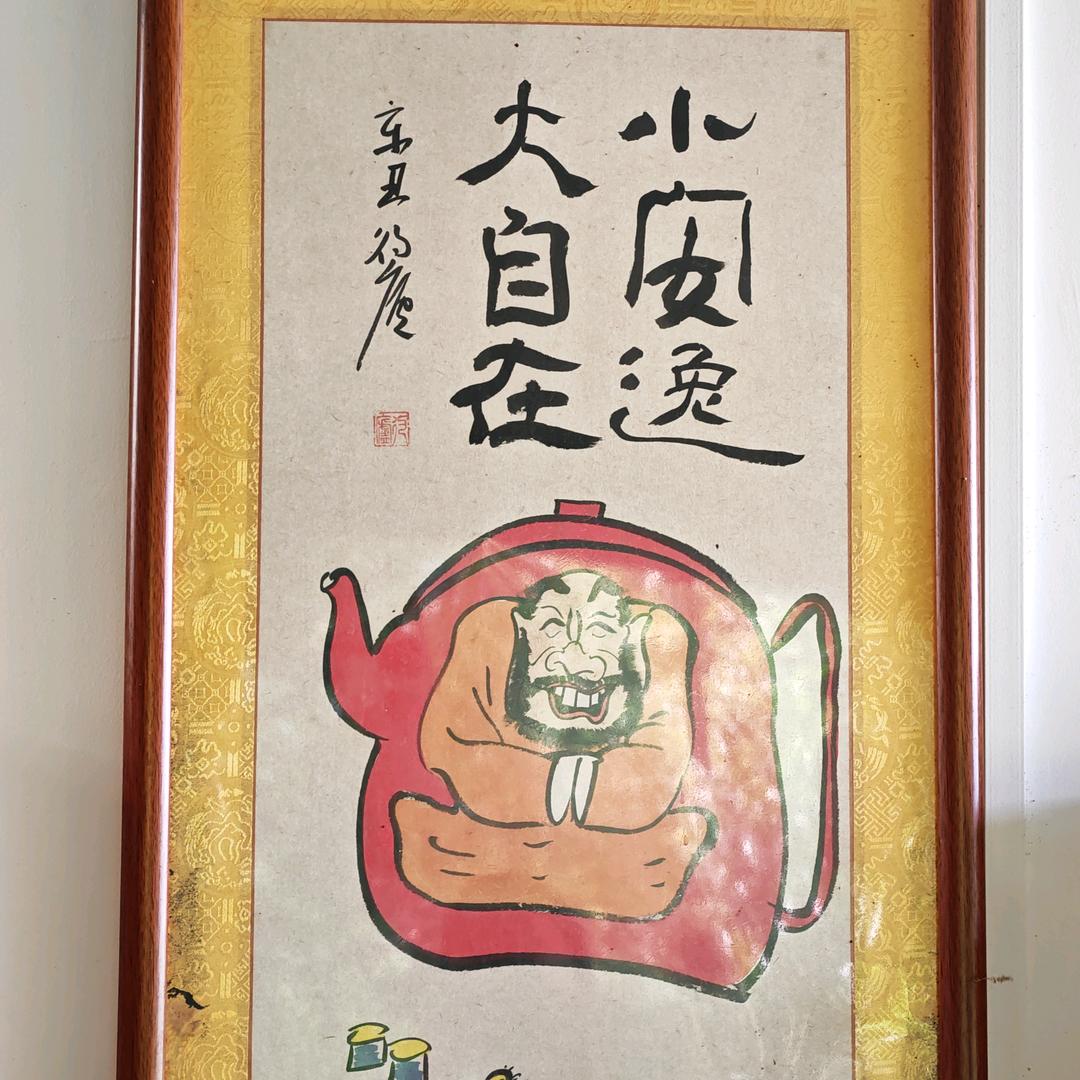 小安逸
大自在
辛丑 得廬